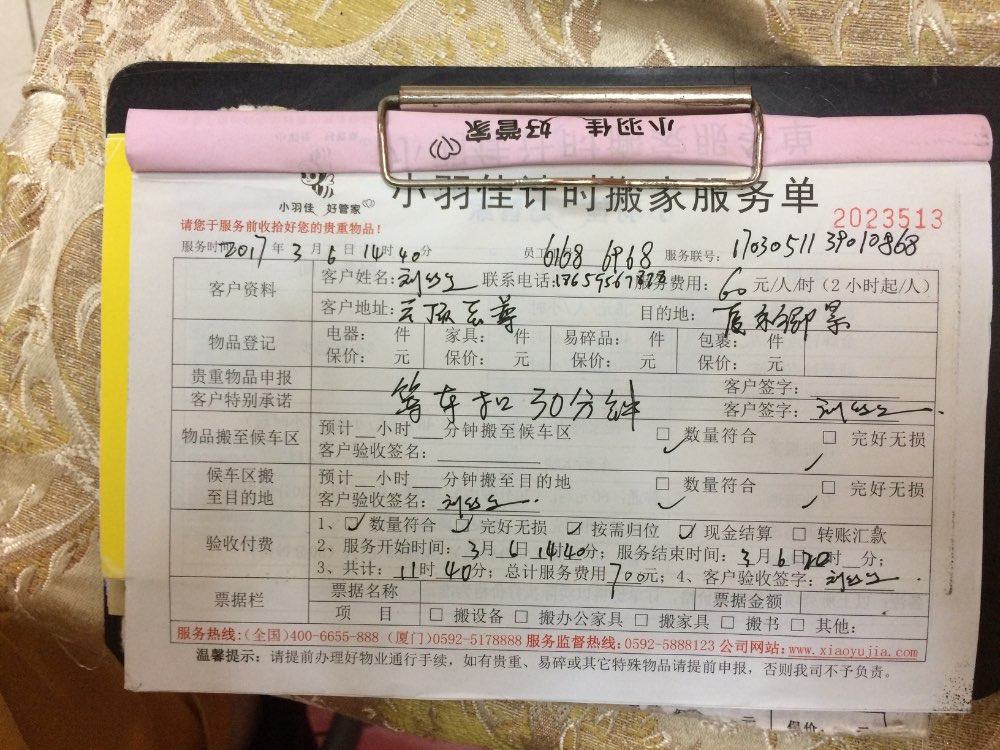 小羽佳 好管家
小羽佳 好管家
小羽佳计时搬家服务单
2023513
请您于服务前收拾好您的贵重物品!
服务时间 2017年3月6日14时40分 员工 6168 6968 服务联号: 17030511 39010868
客户资料
客户姓名: 联系电话: 服务费用: 60元/人/时(2小时起/人)
客户地址: 目的地:
物品登记
电器: 件 家具: 件 易碎品: 件 包裹: 件
保价: 元 保价: 元 保价: 元 保价: 元
贵重物品申报 客户签字:
客户特别承诺 等车扣30分钟 客户签字:
物品搬至候车区
预计__小时___分钟搬至候车区 □ 数量符合 □ 完好无损
客户验收签名:
候车区搬至目的地
预计__小时___分钟搬至目的地 □ 数量符合 □ 完好无损
客户验收签名:
验收付费
1、☑数量符合 ☑完好无损 ☑按需归位 ☑现金结算 □转账汇款
2、服务开始时间: 3月6日14时40分; 服务结束时间: 3月6日时__分;
3、共计: 11时40分; 总计服务费用700元; 4、客户验收签字:
票据栏
票据名称 票据金额
项 目 □ 搬设备 □ 搬办公家具 □ 搬家具 □ 搬书 □ 其他:
服务热线:(全国)400-6655-888 (厦门)0592-5178888 服务监督热线:0592-5888123 公司网站:www.xiaoyujia.com
温馨提示: 请提前办理好物业通行手续, 如有贵重、易碎或其它特殊物品请提前申报, 否则我司不予负责。
保价: 元